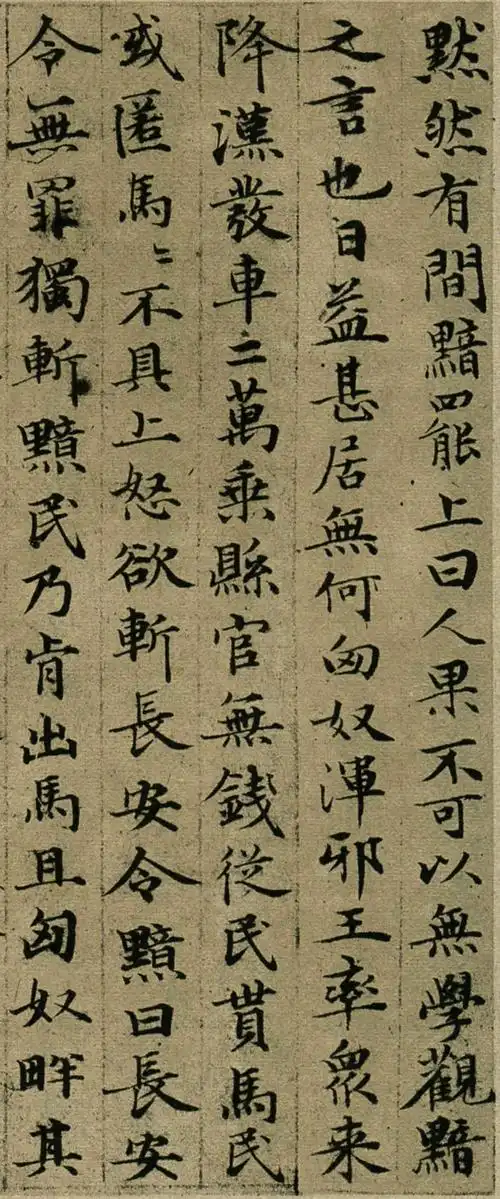 黙然有間黯罷上曰人果不可以無學觀黯
之言也日益甚居無何匈奴渾邪王率衆来
降漢發車二萬乗縣官無錢從民貰馬民
或匿馬〻不具上怒欲斬長安令黯曰長安
令無罪獨斬黯民乃肯出馬且匈奴畔其